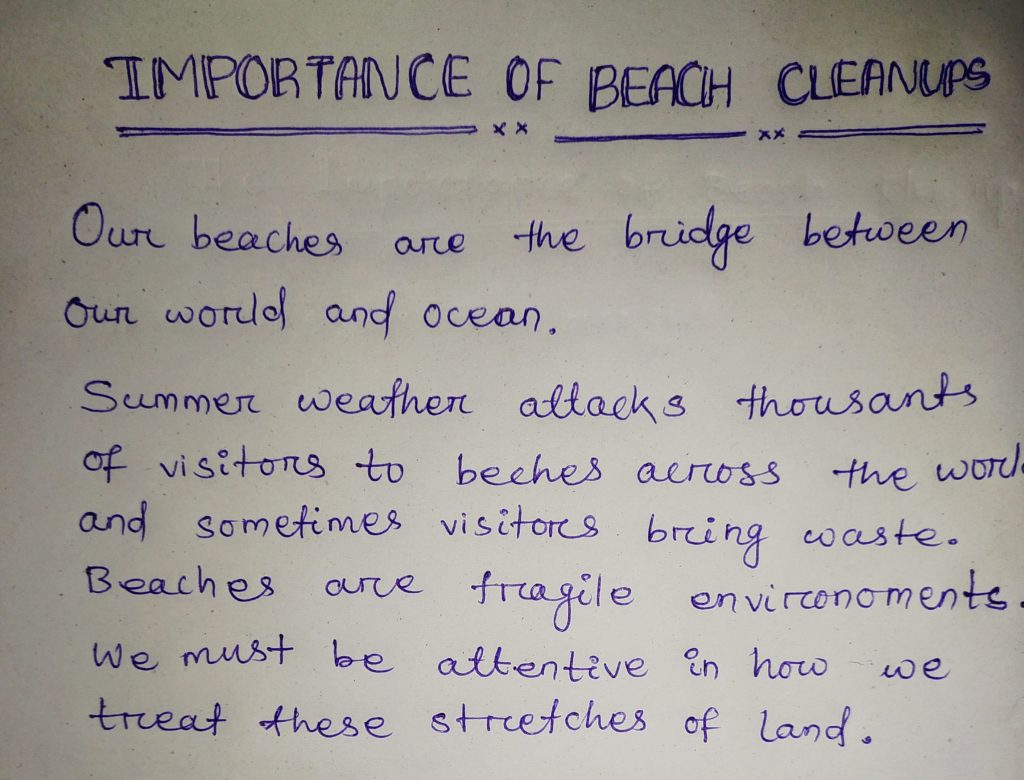 IMPORTANCE OF BEACH CLEANUPS
Our beaches are the bridge between
our world and ocean.
Summer weather attacks thousants
of visitors to beeches across the world
and sometimes visitors bring waste.
Beaches are fragile environoments.
We must be attentive in how we
treat these stretches of land.